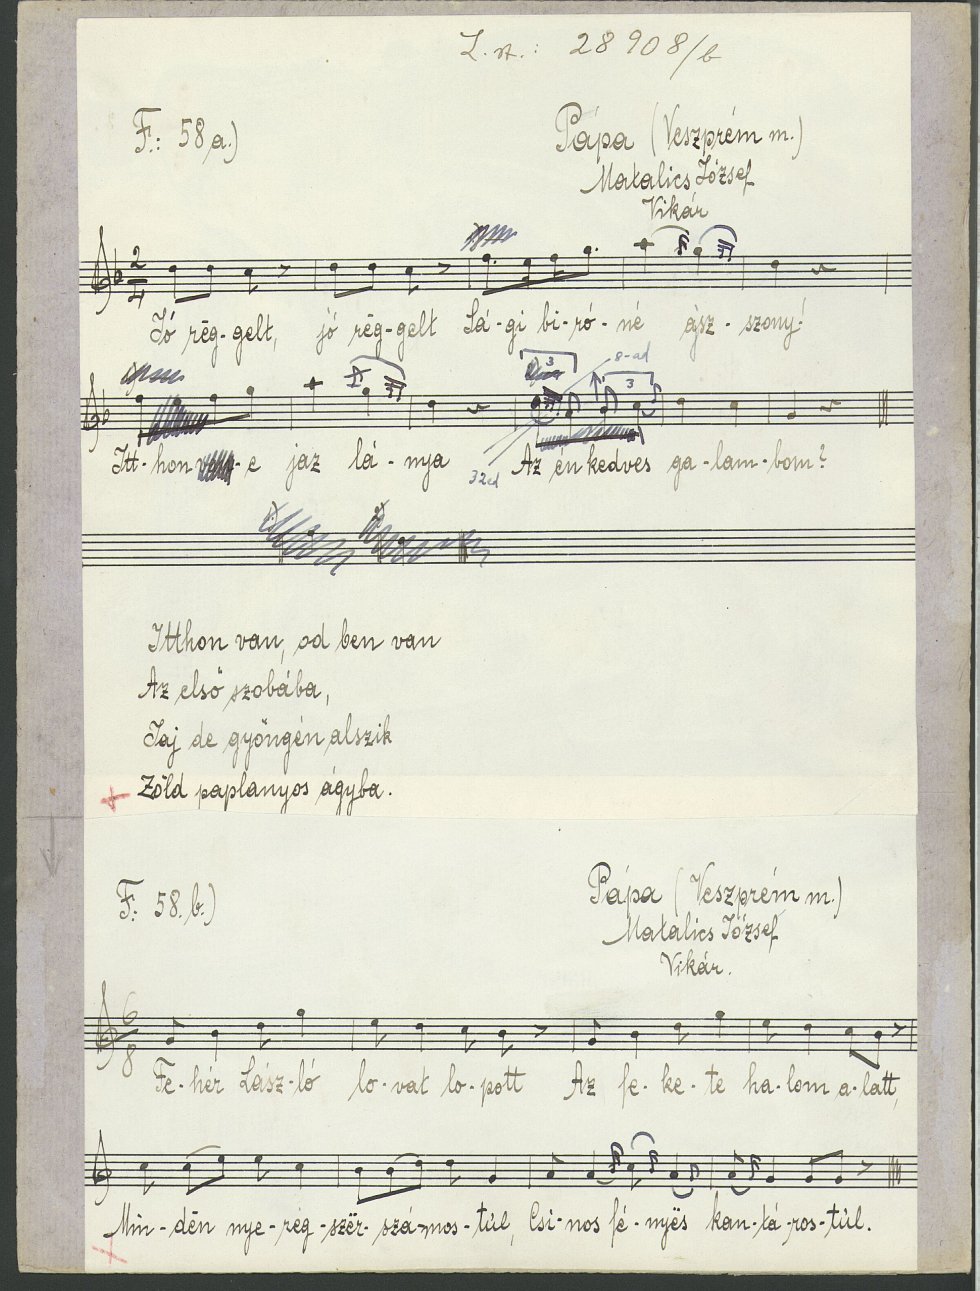 L. sz.: 28908/b
F.: 58 a.)
Pápa (Veszprém m.)
Matalics József
Vikár
2/4
Jó rëg-gelt, jó rëg-gelt Sá-gi bi-ró-né ász-szony!
3 8-ad 3
Itt-hon -e jaz lá-nya Az én kedves ga-lam-bom?
32ed
Itthon van, od ben van
Az első szobába,
Jaj de gyöngén alszik
Zöld paplanyos ágyba.
F.: 58. b.)
Pápa (Veszprém m.)
Matalics József
Vikár.
6/8
Fe-hér Lász-ló lo-vat lo-pott Az fe-ke-te ha-lom a-latt,
Min-dën nye-reg-szër-szá-mos-túl, Csi-nos fé-nyës kan-tá-ros-túl.